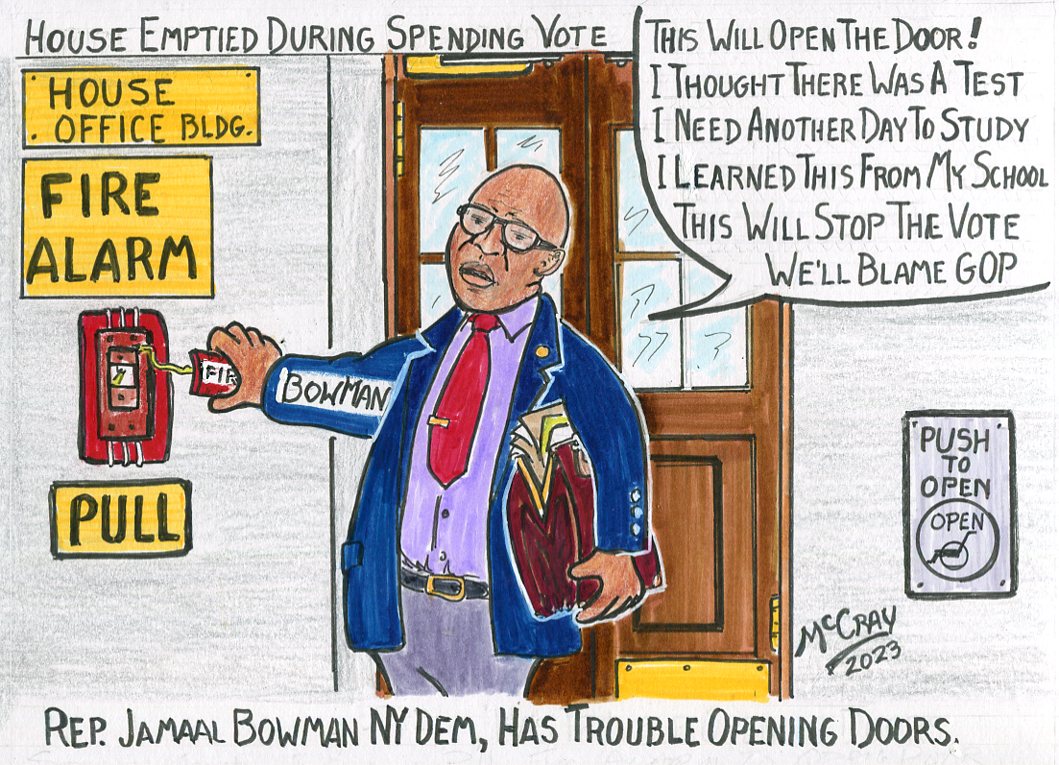 HOUSE EMPTIED DURING SPENDING VOTE
THIS WILL OPEN THE DOOR!
I THOUGHT THERE WAS A TEST
I NEED ANOTHER DAY TO STUDY
I LEARNED THIS FROM MY SCHOOL
THIS WILL STOP THE VOTE
WE'LL BLAME GOP
HOUSE
OFFICE BLDG.
FIRE
ALARM
FIR
BOWMAN
PULL
PUSH
TO
OPEN
OPEN
McCRAY
2023
REP. JAMAAL BOWMAN NY DEM, HAS TROUBLE OPENING DOORS.